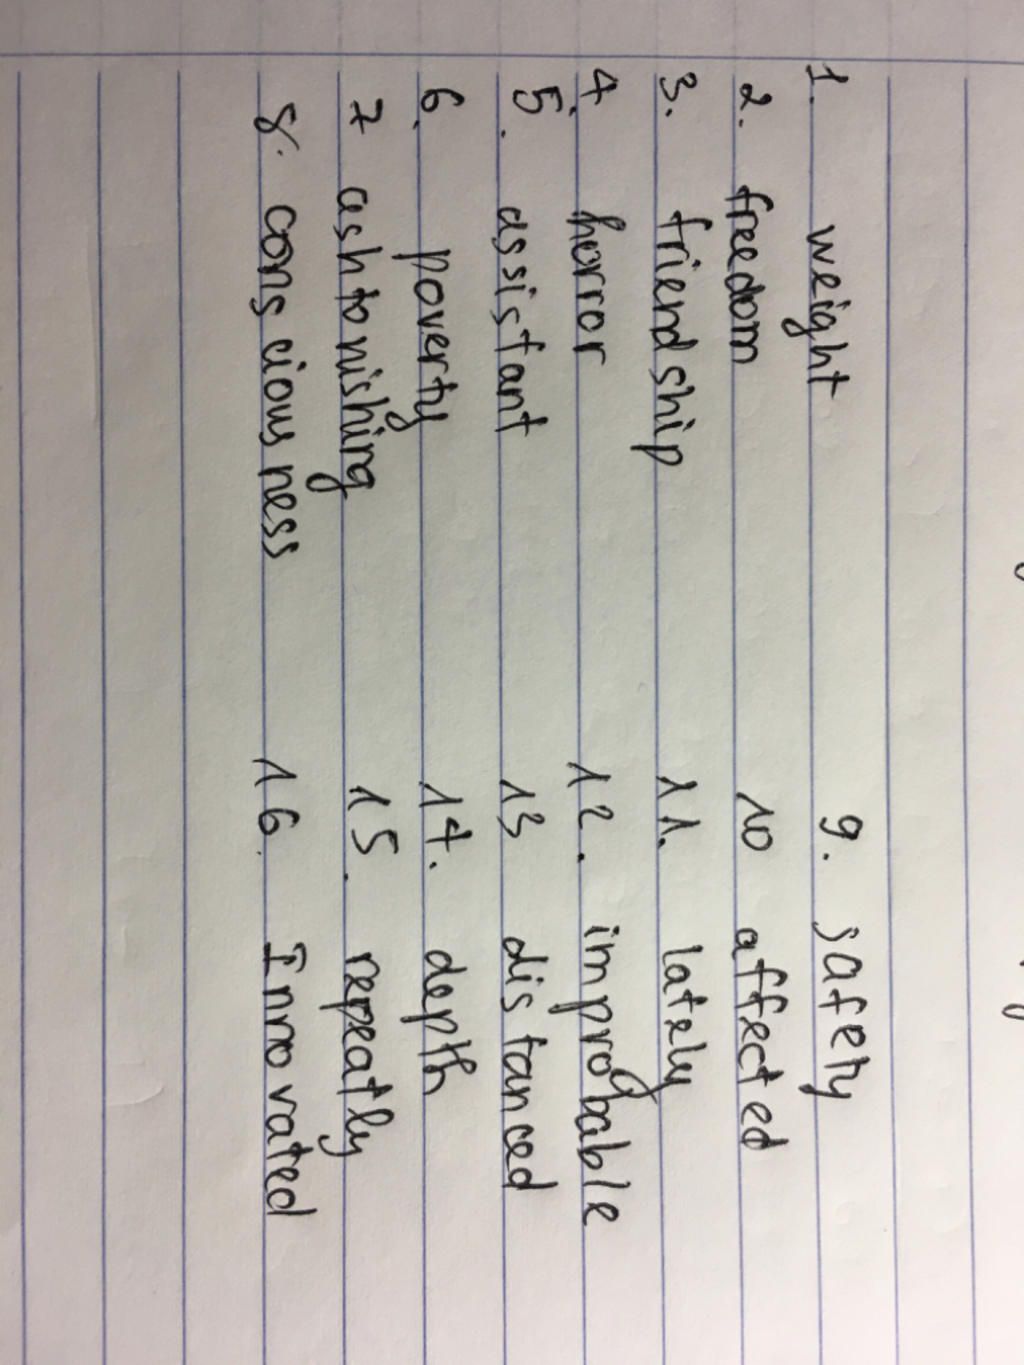 1. weight
2. freedom
3. friendship
4. horror
5. assistant
6. poverty
7 ashtonishing
8. consciousness
9. safety
10 affected
11. lately
12. improbable
13 distanced
14. depth
15. repeatly
16. Innovated